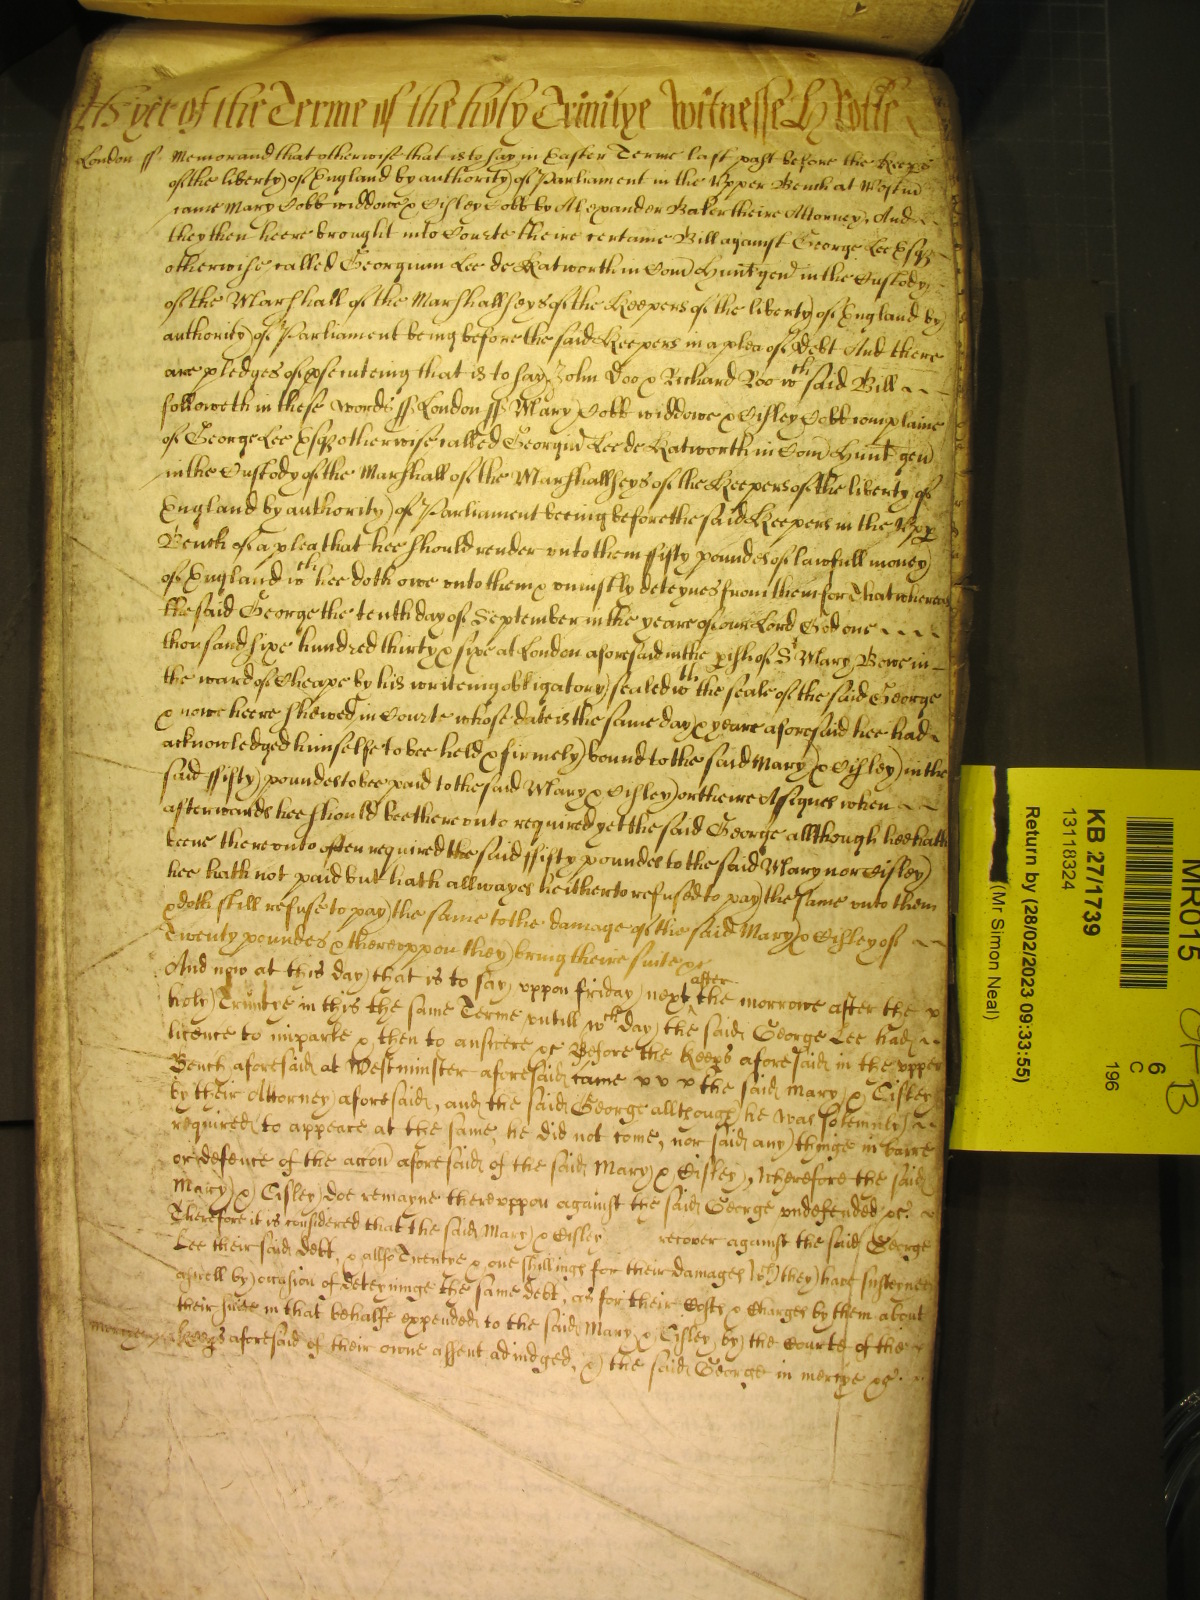 As yet of the Terme of the holy Trinitye Witnesse H Rolle
London ss Memorand that otherwise that is to say in Easter Terme last past before the Keeps
of the liberty of England by authority of Parliament in the Upper Bench at Westm
came Mary Cobb widdowe & Cisley Cobb by Alexander Baker theire Attorney, And
they then heere brought into Courte theire certaine Bill against George Lee Esqr
otherwise called Georgium Lee de Katworth in Com Hunt gen in the Custody
of the Marshall of the Marshallseys of the Keepers of the liberty of England by
authority of Parliament being before the said Keepers in a plea of Debt And there
are pledges of pseruteing that is to say John Doo & Richard Roo wth said Bill
followeth in these words ss London ss Mary Cobb widdowe & Cisley Cobb complaine
of George Lee Esqr otherwise called Georgiu Lee de Katworth in Com Hunt gen
in the Custody of the Marshall of the Marshallseys of the Keepers of the liberty of
England by authority of Parliament beeing before the said Keepers in the Upp
Bench of a plea that hee should render unto them ffifty poundes of lawfull money
of England wth hee doth owe unto them & uniustly deteynes from them for That whereas
the said George the tenth day of September in the yeare of our Lord God one
thousand sixe hundred thirty & sixe at London aforesaid in the pish of St Mary Bowe in
the ward of Cheape by his writeing obligatory sealed wth the seale of the said George
& nowe heere shewed in Courte whose date is the same day & yeare aforesaid hee had
acknowledged himselfe to bee held & firmely bound to the said Mary & Cisley in the
said ffifty poundes to bee paid to the said Mary & Cisley or theire Assignes when
afterwards hee should bee there unto required yet the said George allthough hee hath
beene there unto often required the said ffifty poundes to the said Mary nor Cisley
hee hath not paid but hath allwayes heitherto refused to pay the same unto them
& doth still refuse to pay the same to the damage of the said Mary & Cisley of
Twenty poundes & thereuppon they bring theire suite &c
And now at this day that is to say uppon friday next after the morrowe after the &
holy Trinitye in this the same Terme untill wch day the said George Lee had
licence to imparle & then to answere &c Before the Keeps aforesaid in the upper
Bench aforesaid at Westminster aforesaid came the said Mary & Cisley
by their Attorney aforesaid, and the said George allthough he was solemnely
required to appeare at the same, he did not come, nor said any thinge in barre
or defence of the accon aforesaid of the said Mary & Cisley, wherefore the said
Mary & Cisley doe remayne thereuppon against the said George undefended &c.
Therefore it is considered that the said Mary & Cisley recover against the said George
Lee their said debt, & allso Twentye & one shillings for their damages wch they have susteyned
aswell by occasion of deteyninge the same debt, as for their Costs & Charges by them about
their suite in that behalfe expended to the said Mary & Cisley by the Courte of the
Keeps aforesaid of their owne assent adiudged, & the said George in mercye &c.
MR015
KB 27/1739
13118324
Return by (28/02/2023 09:33:55)
(Mr Simon Neal)
6
C
196